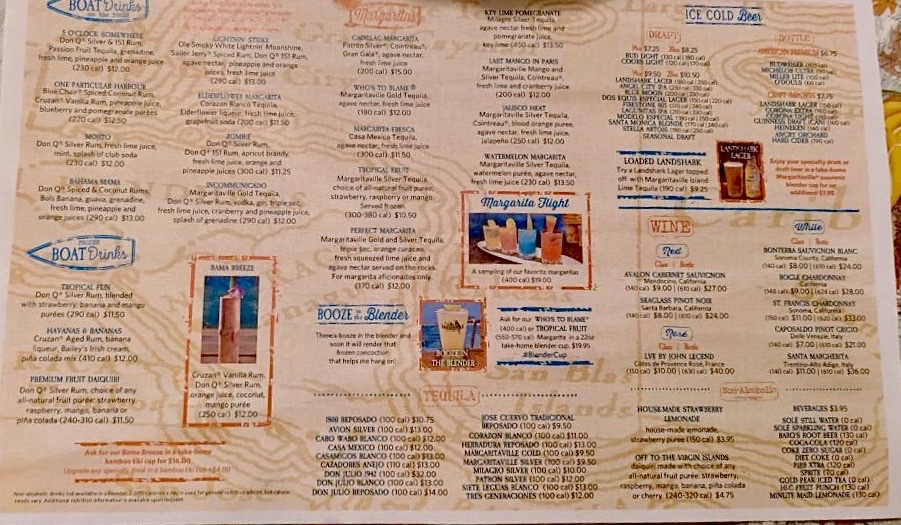 BOAT Drinks
5 O'CLOCK SOMEWHERE
Don Q® Silver & 151 Rum,
Passion Fruit Tequila, grenadine,
fresh lime, pineapple and orange
(230 cal) $12.00
ONE PARTICULAR HARBOUR
Blue Chair® Spiced Coconut Rum,
Cruzan® Vanilla Rum, pineapple juice,
blueberry and pomegranate purées
(220 cal) $12.50
MOJITO
Don Q® Silver Rum, fresh lime juice,
mint, splash of club soda
(230 cal) $12.00
BAHAMA MAMA
Don Q® Spiced & Coconut Rums,
Bols Banana, guava, grenadine,
fresh lime, pineapple and
orange juices (290 cal) $13.00
FROZEN
BOAT Drinks
TROPICAL FUN
Don Q® Silver Rum, blended
with strawberry, banana and mango
purées (290 cal) $11.50
HAVANAS & BANANAS
Cruzan® Aged Rum, banana
liqueur, Bailey's Irish cream,
piña colada mix (410 cal) $12.00
PREMIUM FRUIT DAIQUIRI
Don Q® Silver Rum, choice of any
all-natural fruit purée: strawberry,
raspberry, mango, banana or
piña colada (240-310 cal) $11.50
Ask for our Bama Breeze in a take-home
bamboo tiki cup for $16.00
Upgrade any specialty drink in a bamboo tiki cup +$4.00
LIGHTNIN' STRIKE
Ole Smoky White Lightnin' Moonshine,
Sailor Jerry® Spiced Rum, Don Q® 151 Rum,
agave nectar, pineapple and orange
juices, fresh lime juice
(290 cal) $13.00
ELDERFLOWER MARGARITA
Corazon Blanco Tequila,
Elderflower liqueur, fresh lime juice,
grapefruit soda (200 cal) $11.50
ZOMBIE
Don Q® Silver Rum,
Don Q® 151 Rum, apricot brandy,
fresh lime juice, orange and
pineapple juices (300 cal) $11.25
INCOMMUNICADO
Margaritaville Gold Tequila,
Don Q® Silver Rum, vodka, gin, triple sec,
fresh lime juice, cranberry and pineapple juice,
splash of grenadine (290 cal) $12.00
BAMA BREEZE
Cruzan® Vanilla Rum,
Don Q® Silver Rum,
orange juice, coconut,
mango purée
(250 cal) $12.00
Margaritas
CADILLAC MARGARITA
Patron Silver®, Cointreau®,
Gran Gala®, agave nectar,
fresh lime juice
(200 cal) $15.00
WHO'S TO BLAME®
Margaritaville Gold Tequila,
agave nectar, fresh lime juice
(180 cal) $12.00
MARGARITA FRESCA
Casa Mexico Tequila,
agave nectar, fresh lime juice
(300 cal) $11.50
TROPICAL FRUIT
Margaritaville Silver Tequila,
choice of all-natural fruit purée:
strawberry, raspberry or mango.
Served frozen
(300-380 cal) $10.50
PERFECT MARGARITA
Margaritaville Gold and Silver Tequila,
triple sec, orange curacao,
fresh squeezed lime juice and
agave nectar served on the rocks.
For margarita aficionados only.
(170 cal) $12.00
KEY LIME POMEGRANATE
Milagro Silver Tequila,
agave nectar, fresh lime and
pomegranate juice,
key lime (450 cal) $13.50
LAST MANGO IN PARIS
Margaritaville Mango and
Silver Tequila, Cointreau®,
fresh lime and cranberry juice
(200 cal) $12.00
JALISCO HEAT
Margaritaville Silver Tequila,
Cointreau®, blood orange purée,
agave nectar, fresh lime juice,
jalapeño (250 cal) $12.00
WATERMELON MARGARITA
Margaritaville Silver Tequila,
watermelon purée, agave nectar,
fresh lime juice (230 cal) $13.50
Margarita Flight
A sampling of our favorite margaritas
(400 cal) $19.00
BOOZE in the Blender
There's booze in the blender and
soon it will render that
frozen concoction
that helps me hang on!
BOOZE IN
THE BLENDER
Ask for our "WHO'S TO BLAME"
(400 cal) or TROPICAL FRUIT
(550-570 cal) Margarita in a 22oz
take-home blender cup. $19.95
#BlenderCup
TEQUILA
1800 REPOSADO (100 cal) $10.75
AVION SILVER (100 cal) $13.00
CABO WABO BLANCO (100 cal) $12.00
CASA MEXICO (100 cal) $12.00
CASAMIGOS BLANCO (100 cal) $13.00
CAZADORES ANEJO (100 cal) $13.00
DON JULIO 1942 (100 cal) $12.00
DON JULIO BLANCO (100 cal) $13.00
DON JULIO REPOSADO (100 cal) $14.00
JOSE CUERVO TRADICIONAL
REPOSADO (100 cal) $9.50
CORAZON BLANCO (100 cal) $11.00
HERRADURA REPOSADO (100 cal) $13.00
MARGARITAVILLE GOLD (100 cal) $9.50
MARGARITAVILLE SILVER (100 cal) $9.50
MILAGRO SILVER (100 cal) $10.00
PATRON SILVER (100 cal) $12.00
SIETE LEGUAS BLANCO (100 cal) $13.00
TRES GENERACIONES (100 cal) $12.00
ICE COLD Beer
DRAFT
$7.25 $8.25
BUD LIGHT (110 cal) (180 cal)
COORS LIGHT (120 cal) (170 cal)
$9.50 $10.50
LANDSHARK LAGER
ANGEL CITY IPA
BLUE MOON
DOS EQUIS ESPECIAL LAGER
FIRESTONE 805
LAGUNITAS IPA
MODELO ESPECIAL
SANTA MONICA BLONDE
STELLA ARTOIS
SEASONAL DRAFT
BOTTLE
AMERICAN PREMIUM $6.75
BUDWEISER
MICHELOB ULTRA
MILLER LITE
O'DOULS
CRAFT IMPORTS $7.75
LANDSHARK LAGER
CORONA EXTRA
CORONA LIGHT
GUINNESS DRAFT (CAN)
HEINEKEN
ANGRY ORCHARD
HARD CIDER (190 cal)
LOADED LANDSHARK
Try a Landshark Lager topped
off with Margaritaville Island
Lime Tequila (190 cal) $9.25
LANDSHARK
LAGER
Enjoy your specialty drink or
draft beer in a take-home
Margaritaville® souvenir
blender cup for an
additional $7.95
WINE
Red
Glass | Bottle
AVALON CABERNET SAUVIGNON
Mendocino, California
(140 cal) $9.00 | (610 cal) $27.00
SEAGLASS PINOT NOIR
Santa Barbara, California
(140 cal) $8.00 | (610 cal) $24.00
Rosé
Glass | Bottle
LVE BY JOHN LEGEND
Côtes de Provence Rosé, France
(150 cal) $10.00 | (630 cal) $40.00
White
Glass | Bottle
BONTERRA SAUVIGNON BLANC
Sonoma County, California
(140 cal) $8.00 | (610 cal) $24.00
BOGLE CHARDONNAY
California
(148 cal) $9.00 | (624 cal) $28.00
ST. FRANCIS CHARDONNAY
Sonoma, California
(150 cal) $11.00 | (620 cal) $33.00
CAPOSALDO PINOT GRIGIO
Delle Venezie, Italy
(140 cal) $7.00 | (610 cal) $21.00
SANTA MARGHERITA
Trentino-Alto Adige, Italy
(140 cal) $11.00 | (610 cal) $36.00
Non-Alcoholic
HOUSE-MADE STRAWBERRY
LEMONADE
house-made lemonade,
strawberry purée (150 cal) $3.95
OFF TO THE VIRGIN ISLANDS
daiquiri made with choice of any
all-natural fruit purée: strawberry,
raspberry, mango, banana, piña colada
or cherry (240-320 cal) $4.75
BEVERAGES $3.95
SOLE STILL WATER (0 cal)
SOLE SPARKLING WATER (0 cal)
BARQ'S ROOT BEER (130 cal)
COCA-COLA (120 cal)
COKE ZERO SUGAR (0 cal)
DIET COKE (0 cal)
PIBB XTRA (120 cal)
SPRITE (70 cal)
GOLD PEAK ICED TEA (0 cal)
HI-C FRUIT PUNCH (130 cal)
MINUTE MAID LEMONADE (130 cal)